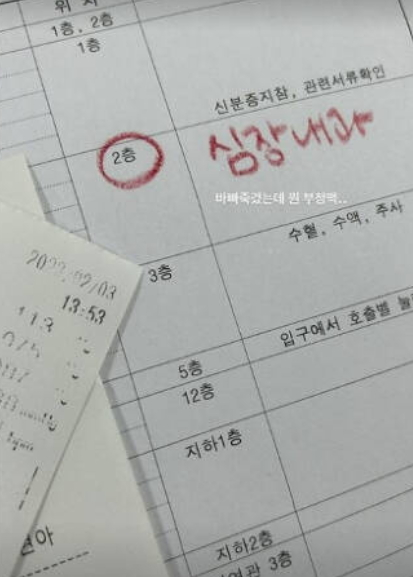 위 치
1층, 2층
1층
신분증지참, 관련서류확인
2층
심장내과
바빠죽겠는데 뭔 부정맥..
수혈, 수액, 주사
3층
2022/02/03
13:53
입구에서 호출벨
5층
12층
지하1층
지하2층
3층